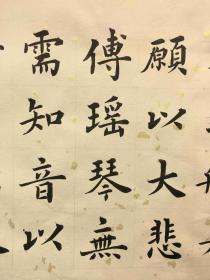 願以大悲
傅瑶琴無
需知音以